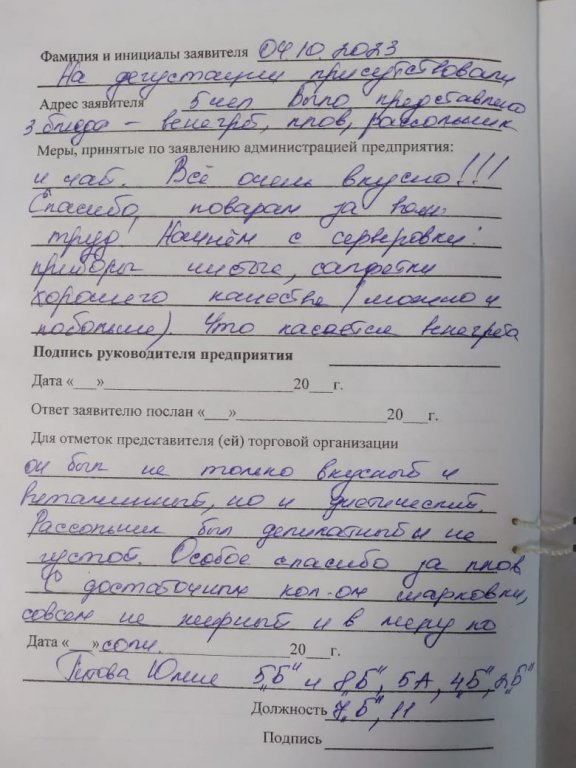 Фамилия и инициалы заявителя 04.10.2023
На дегустации присутствовали
Адрес заявителя 5 чел Было представлено
3 блюда – венегрет, плов, рассольник
Меры, принятые по заявлению администрацией предприятия:
и чай. Всё очень вкусно!!!
Спасибо, поварам за ваш
труд! Начнём с серверовки:
приборы чистые, салфетки
хорошего качества (можно и
побольше). Что касается венегрета
Подпись руководителя предприятия
Дата «___»____________20___г.
Ответ заявителю послан «___»____________20___г.
Для отметок представителя (ей) торговой организации
он был не только вкусный и
витаминный, но и диетический.
Рассольник был деликатный и не
густой. Особое спасибо за плов
с достаточным кол-ом марковки,
совсем не жирный и в меру по
Дата «___» соли. 20___г.
Юлие 5„Б" и 8„Б", 5А, 4„Б", 2„Б"
Должность 7„Б", 11
Подпись